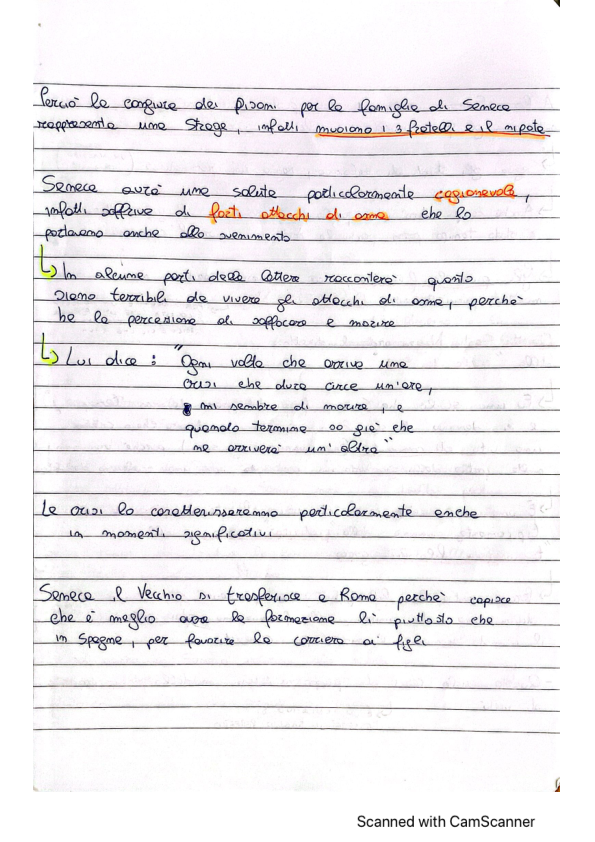 Perciò la congiura dei Pisoni per la famiglia di Seneca
rappresenta una strage, infatti muoiono i 3 fratelli e il nipote
Seneca avrà una salute particolarmente cagionevole,
infatti soffriva di forti attacchi di asma che lo
portavano anche allo svenimento
↳ In alcune parti delle lettere racconterà quanto
siano terribili da vivere gli attacchi di asma, perché
ha la percezione di soffocare e morire
↳ Lui dice: "Ogni volta che arriva una
crisi che dura circa un'ora,
mi sembra di morire, e
quando termina so già che
ne arriverà un'altra"
Le crisi lo caratterizzeranno particolarmente anche
in momenti significativi
Seneca il Vecchio si trasferisce a Roma perché capisce
che è meglio avere la formazione lì piuttosto che
in Spagna, per favorire la carriera ai figli
Scanned with CamScanner